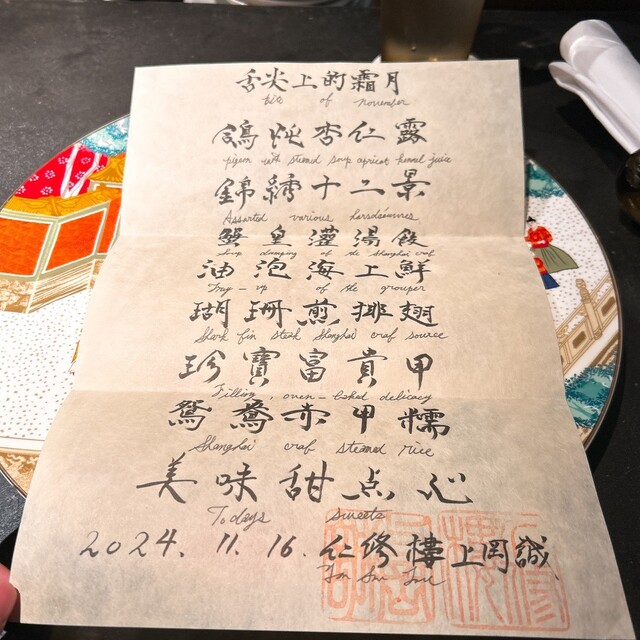 舌尖上的霜月
kiss of november
鴿炖杏仁露
pigeon with steamed soup apricot kennel juice
錦繍十二景
Assorted various horsdeuvres
蟹皇灌湯餃
Soup dumping of the Shanghai craf
油泡海上鮮
Fry-up of the grouper
瑚珊煎排翅
Shark fin steak Shanghai craf source
珍寶富貴甲
Filling, oven-baked delicacy
鴛鴦赤甲糯
Shanghai craf steamed rice
美味甜点心
Todays sweets
2024. 11. 16. 仁修樓上岡誠